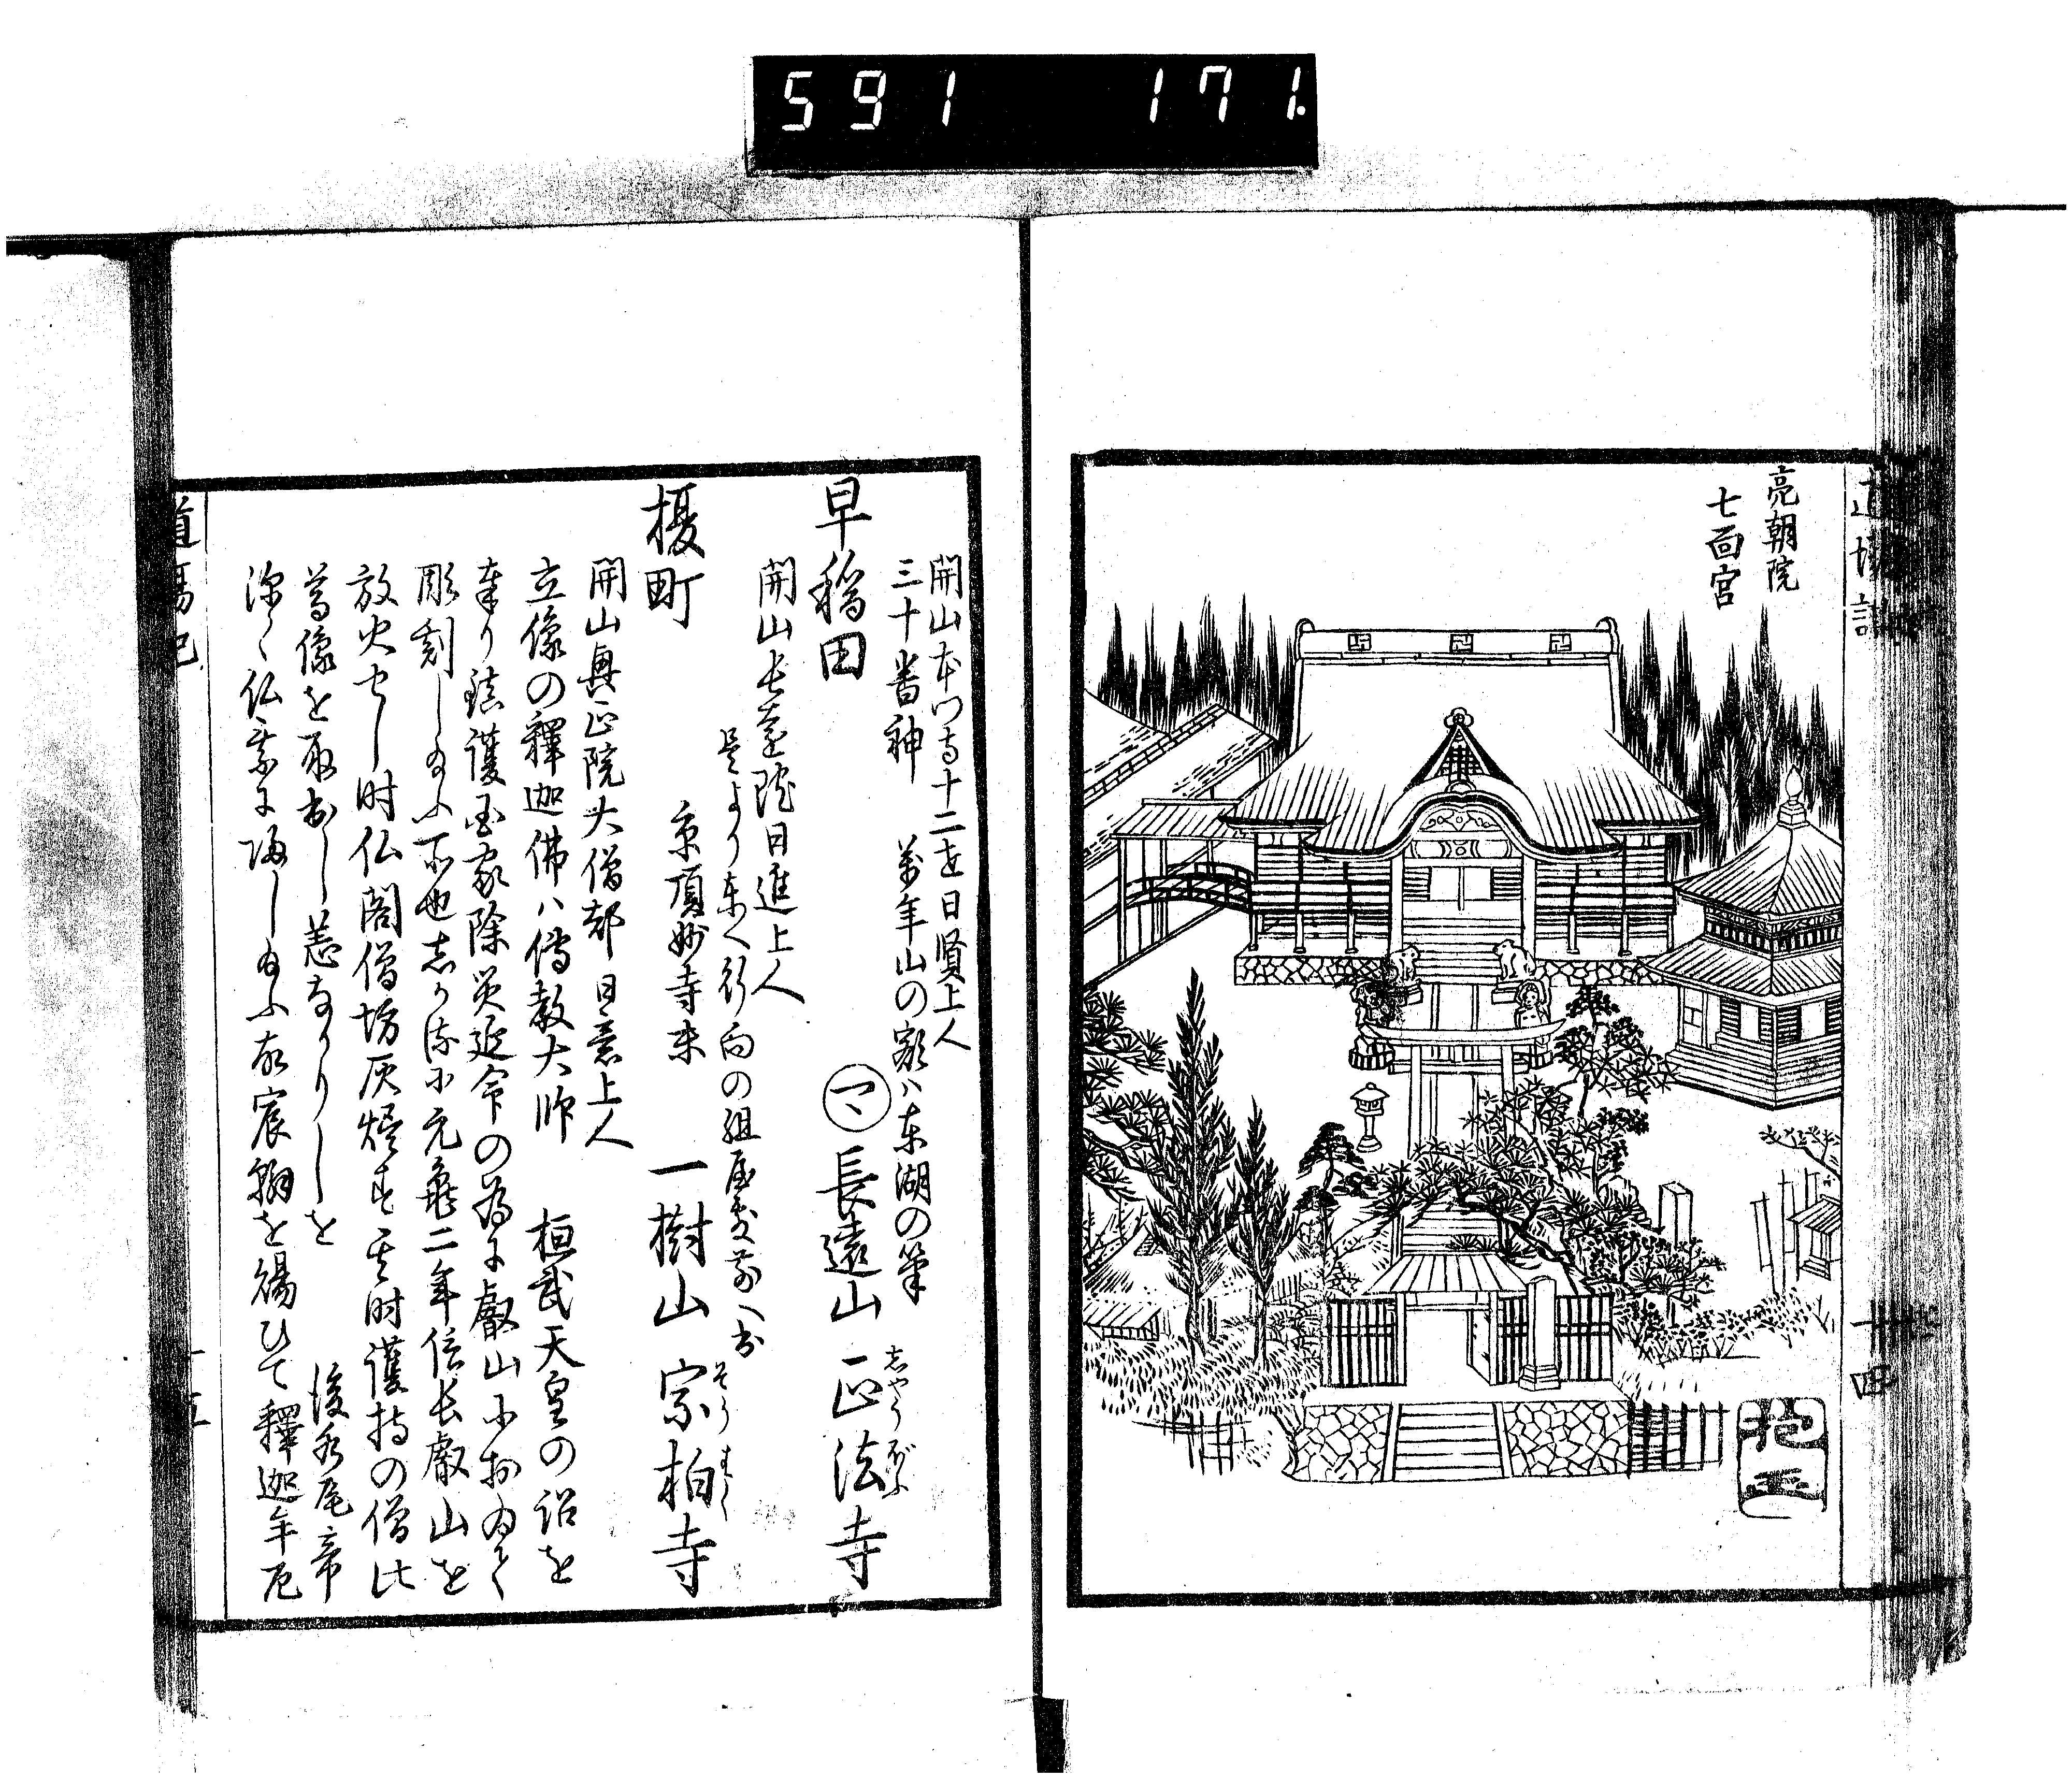 591 171
亮朝院
七面宮
道場記
十四
抱玉
開山本門寺十二世日賢上人
三十番神 萬年山の額ハ東湖の筆
早稲田 マヽ 長遠山 正法寺
志やうぼふ
開山長遠院日進上人
是より東へ行向の組屋敷前へ出
榎町 京頂妙寺末 一樹山 宗柏寺
そうはく
開山興正院大僧都日意上人
立像の釋迦佛ハ傳教大師 桓武天皇の詔を
奉り鎮護国家除災延命の為に叡山に於ゐて
彫刻し給ふ所也志かるに元亀二年信長叡山を
放火せし時仏閣僧坊灰燼す其時護持の僧此
尊像を取出し恙なかりしを 後水尾帝
深く仏乗に帰し給ふ故宸翰を賜ひて釋迦牟尼
道場記
十五